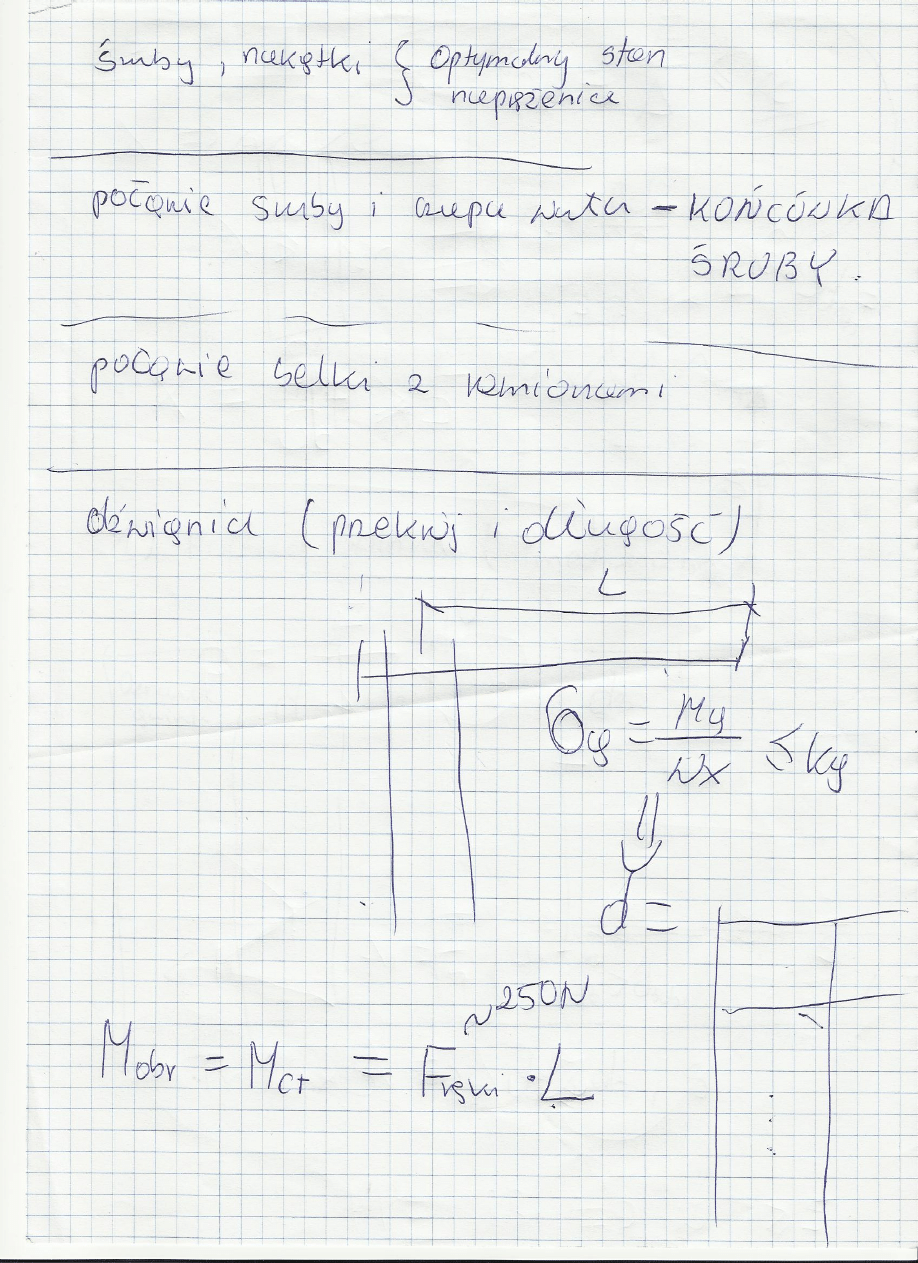 śruby, nakrętki { Optymalny stan
naprężenia
połączenie śruby i czopa wału – KOŃCÓWKA
ŚRUBY.
połączenie belki z ramionami
dźwignia (przekrój i długość)
L
σg = Mg / Wx ≤ kg
d =
~250N
Mobr = Mct = Fręki · L